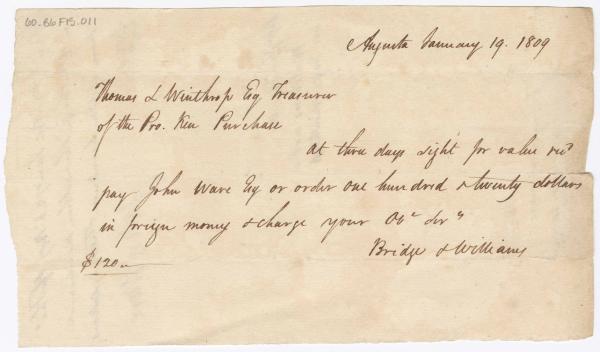 60.86F15.011
Augusta January 19. 1809
Thomas L Winthrop Esq Treasurer
of the Pro. Ken Purchase
At three days sight for value recd
pay John Ware Esq or order one hundred & twenty dollars
in foreign money & charge your Obt Ser"
$120--
Bridge & Williams